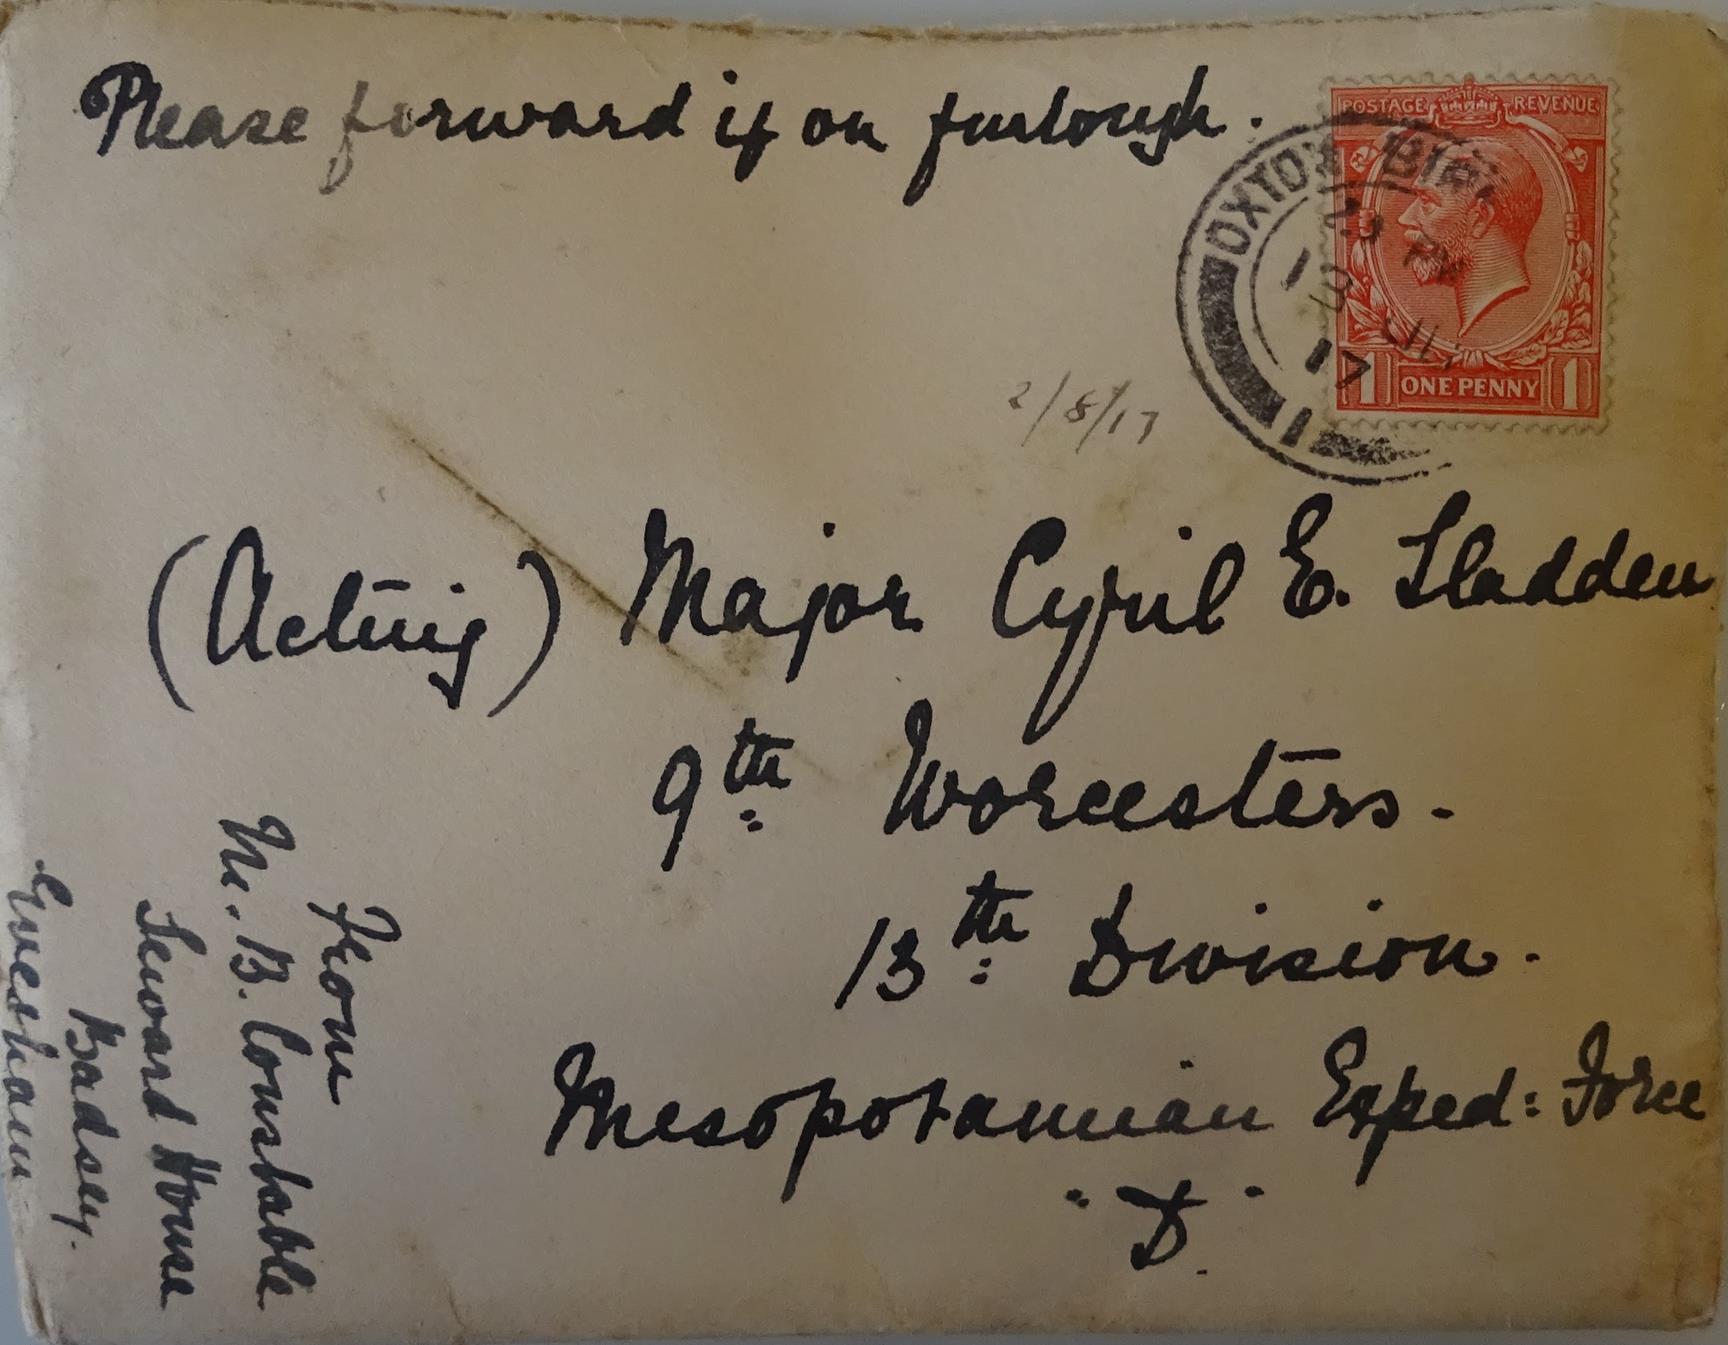 Please forward if on furlough.
POSTAGE REVENUE
OXTON BIRK
PM
13 JUL
17
1 ONE PENNY 1
2/8/17
(Acting) Major Cyril E. Sladden
9th Worcesters.
13th Division.
Mesopotamian Exped: Force
"D"
From
M. B. Constable
Seward House
Badsey.
Evesham